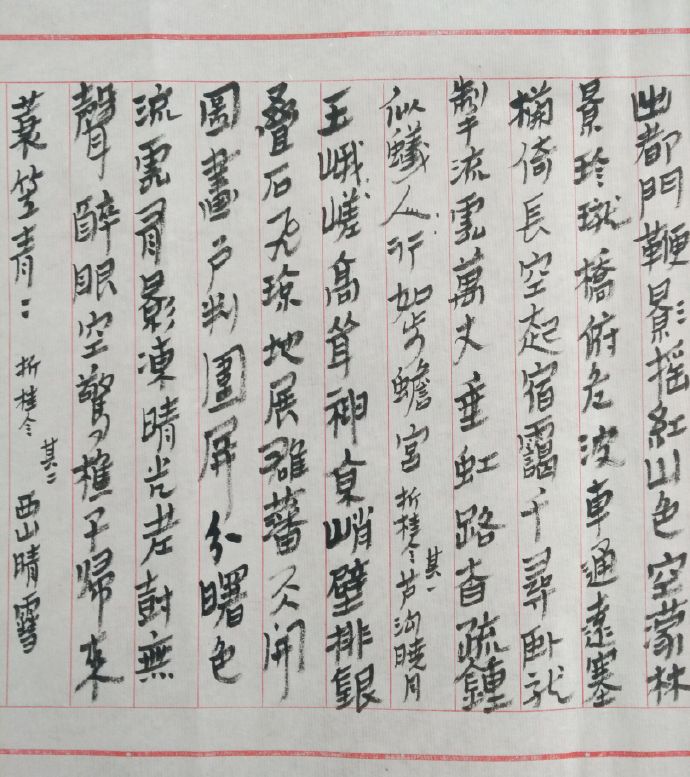 出都門鞭影摇紅山色空蒙林
景玲瓏橋俯危波車通遠塞
欄倚長空起宿靄千尋卧龍
掣流雲萬丈垂虹路杳疏鐘
似蟻人行如步蟾宮 折桂令其一芦沟曉月
玉峨嵯高耸神京峭壁排銀
叠石飞琼地展雄藩天開
圖畫户判圍屏分曙色
流雲有影凍晴光老树無
聲醉眼空驚樵子歸來
蓑笠青: 折桂令其二 西山晴雪